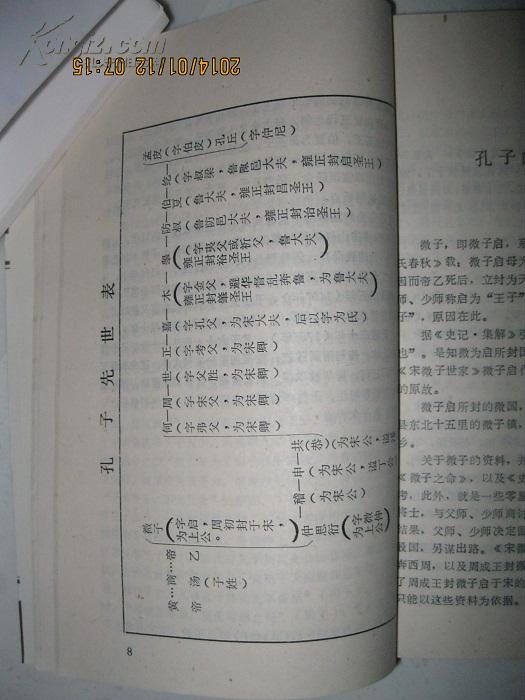 孔子先世表
黄帝…商汤(子姓)…帝乙
微子(字启，周初封于宋，为上公。)
仲思衍(字微仲为上公)
稽(为宋公)
申(为宋公，谥丁公
共(恭)(为宋公，谥
何(字弗父，为宋卿)
周(字宋父，为宋卿)
世(字父胜，为宋卿)
正(字考父，为宋卿)
嘉(字孔父，为宋大夫，后以字为氏)
木(字金父，避华督乱奔鲁，为鲁大夫)(雍正封肇圣王)
(字夷父或祈父，鲁大夫)(雍正封裕圣王)
防叔(鲁防邑大夫，雍正封诒圣王)
伯夏(鲁大夫，雍正封昌圣王)
纥(字叔梁，鲁陬邑大夫，雍正封启圣王)
孟皮(字伯皮)
孔丘(字仲尼)
8
孔子
微子，即微子启，
氏春秋》载，微子启母为
因而帝乙死后，立纣为天
师、少师称启为"王子"
子"，原因在此。
据《史记·集解》
也"。是知微为启所封国
《宋微子世家》微子启作
的原故。
微子启所封的微国，
县东北十五里的微子镇，
乡。
关于微子的资料，
《微子之命》，以及《史
考，此外，就是一些零
将士，与父师、少师商讨
结果，父师、少师决定留
殷国，另谋出路。《宋
奔西周，以及周成王封
了周成王封微子启于宋的
只能以这些资料为依据。
2014/01/12 07:15